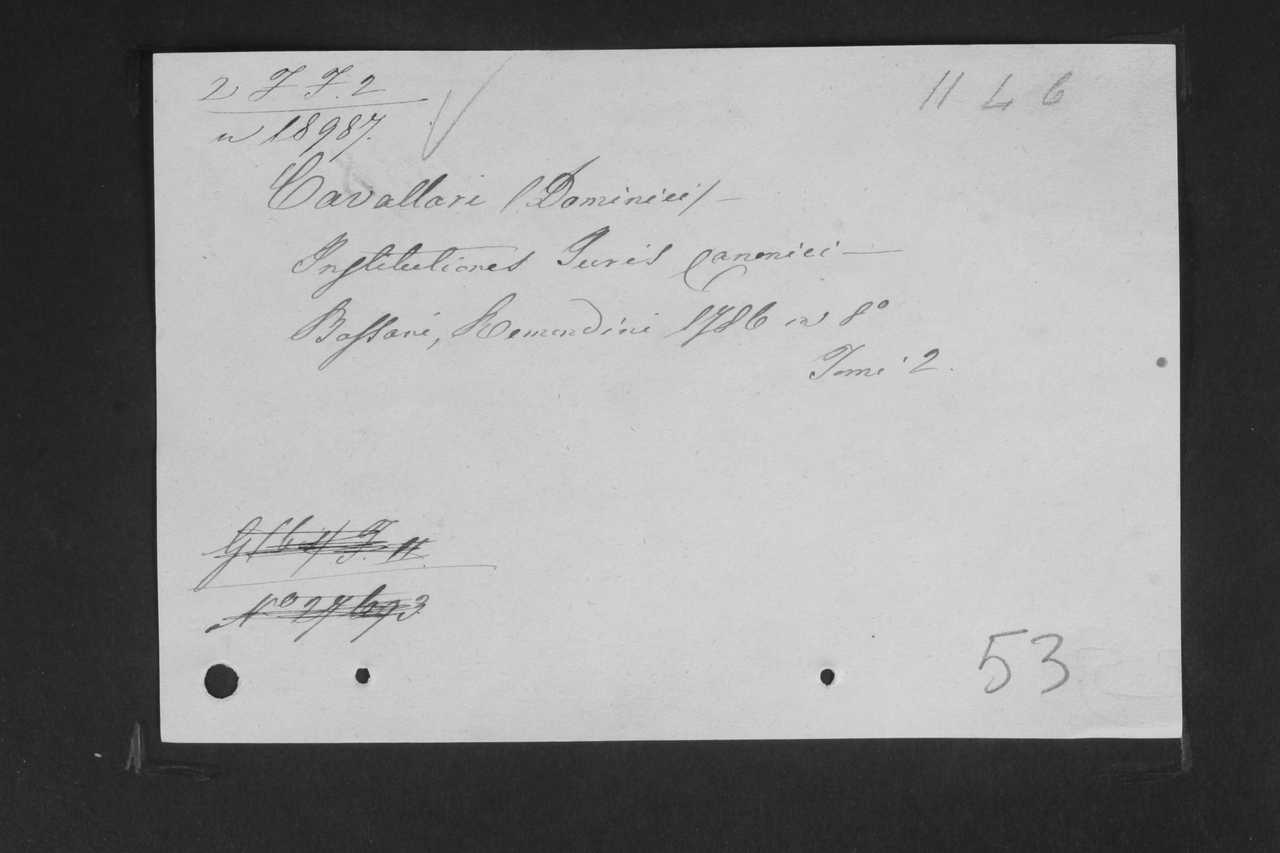 2 F F. 2
11 L 6
n 18987.
Cavallari (Dominici) —
Institutiones Juris Canonici —
Bassani, Remondini 1786 in 8°
Tomi 2.
N° 27693
53